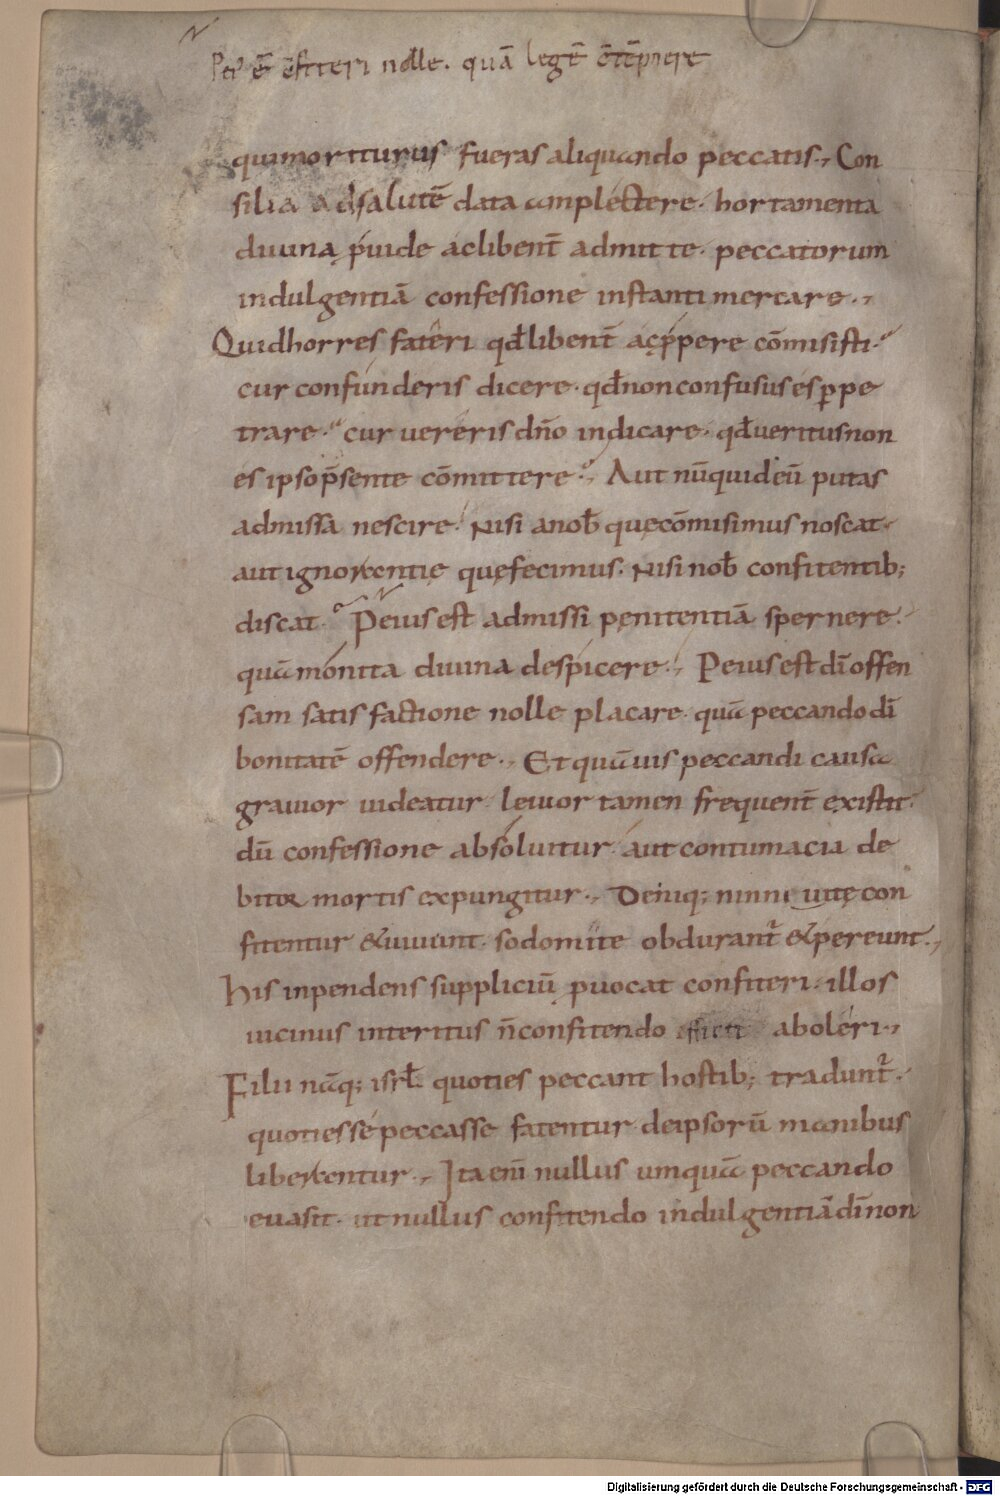 Pei' ē c̄fiteri nolle. quā legē c̄tēpnere
qui moriturus fueras aliquando peccatis., Con
silia ad salutē data amplectere. hortamenta
diuina p̄uide ac libent̄ admitte. peccatorum
indulgentiā confessione instanti mercare.,
Quid horres fateri qđ libent̄ accippere cōmisisti.
cur confunderis dicere. qđ non confusus es ꝑpe
trare. cur uereris dn̄o indicare. qđ ueritus non
es ipso p̄sente cōmittere., Aut nūquid eū putas
admissa nescire. Nisi a nob̄ quę cōmisimus noscat.
aut ignorantię quę fecimus. Nisi nob̄ confitentib;
discat. Peius est admissi penitentiā spernere.
quā monita diuina despicere., Peius est dī offen
sam satisfactione nolle placare. quā peccando dī
bonitatē offendere., Et quāuis peccandi causa
grauior uideatur. leuior tamen frequent̄ existit.
dū confessione absoluitur. aut contumacia de
bitor mortis expungitur., Deniq; niniuitę con
fitentur & uiuunt. sodomitę obdurant̄ & pereunt.,
His inpendens suppliciū ꝓuocat confiteri. illos
uicinus interitus n̄ confitendo aboleri.,
Filii nāq; isrł quoties peccant hostib; tradunt̄.
quoties se peccasse fatentur de ipsorū manibus
liberantur., Ita enī nullus umquā peccando
euasit. ut nullus confitendo indulgentiā dī non
Digitalisierung gefördert durch die Deutsche Forschungsgemeinschaft - DFG